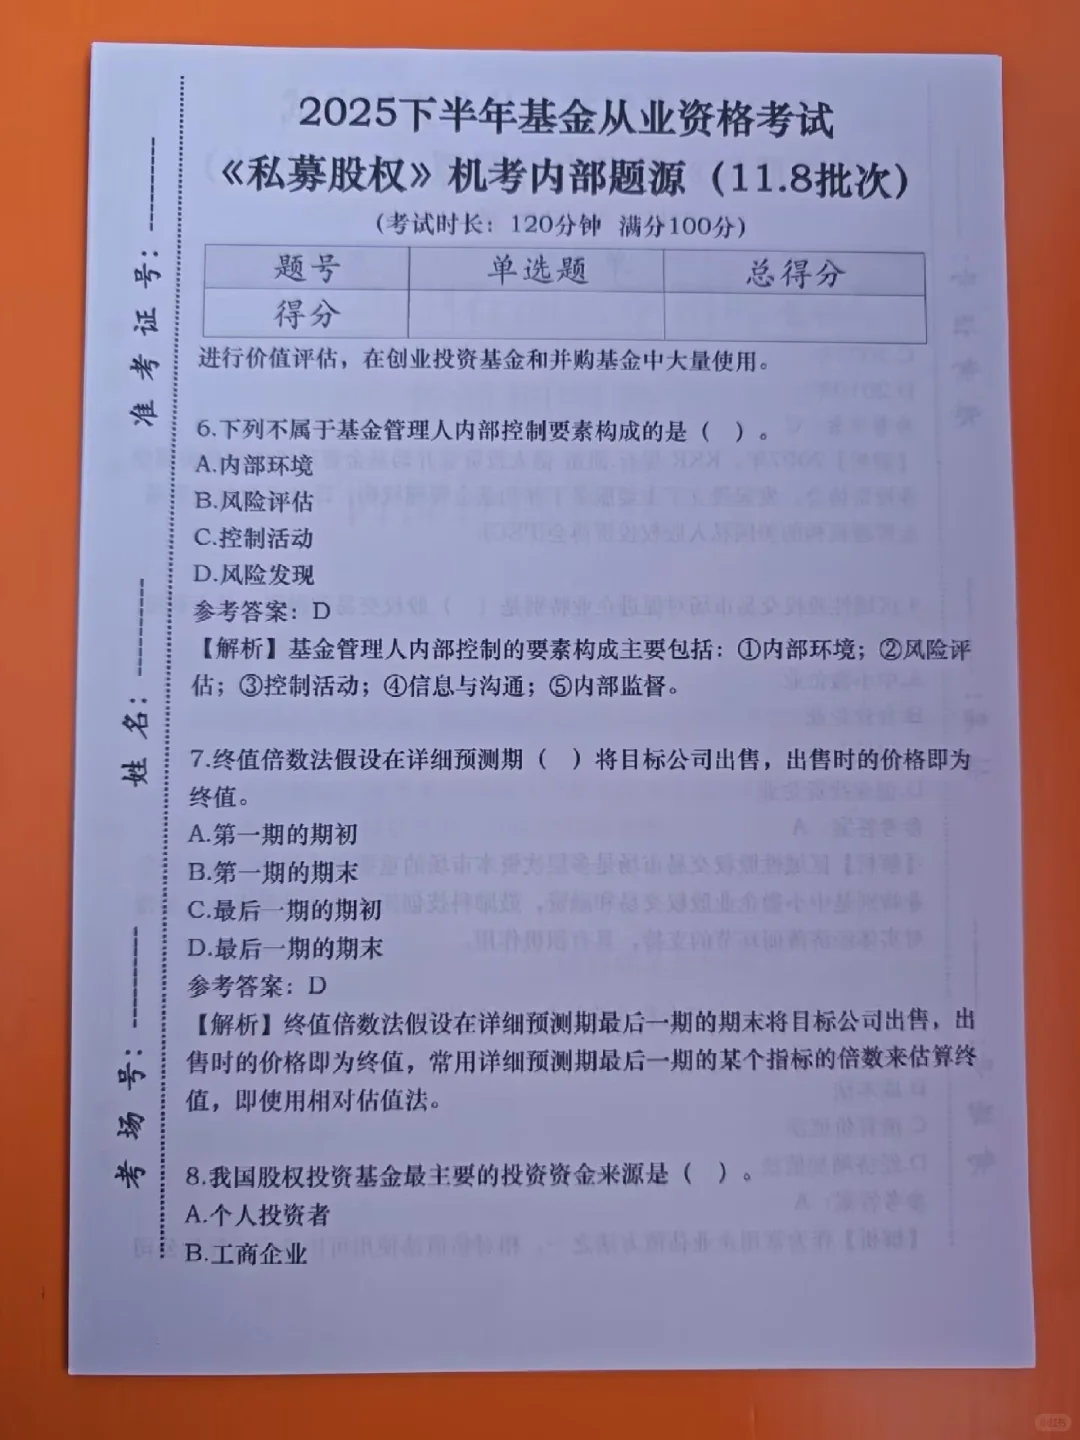 2025下半年基金从业资格考试
《私募股权》机考内部题源（11.8批次）
（考试时长：120分钟 满分100分）
题号 单选题 总得分
得分
进行价值评估，在创业投资基金和并购基金中大量使用。
6.下列不属于基金管理人内部控制要素构成的是（ ）。
A.内部环境
B.风险评估
C.控制活动
D.风险发现
参考答案：D
【解析】基金管理人内部控制的要素构成主要包括：①内部环境；②风险评
估；③控制活动；④信息与沟通；⑤内部监督。
7.终值倍数法假设在详细预测期（ ）将目标公司出售，出售时的价格即为
终值。
A.第一期的期初
B.第一期的期末
C.最后一期的期初
D.最后一期的期末
参考答案：D
【解析】终值倍数法假设在详细预测期最后一期的期末将目标公司出售，出
售时的价格即为终值，常用详细预测期最后一期的某个指标的倍数来估算终
值，即使用相对估值法。
8.我国股权投资基金最主要的投资资金来源是（ ）。
A.个人投资者
B.工商企业
准考证号：
姓名：
考场号：
小红书